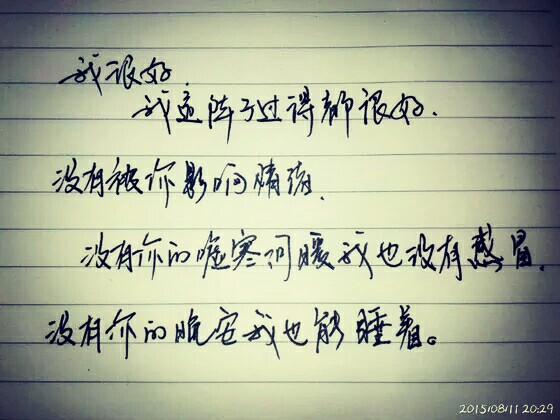 我很好.
我这阵子过得都很好.
没有被你影响情绪.
没有你的嘘寒问暖我也没有感冒.
没有你的晚安我也能睡着。
2015/08/11 20:29